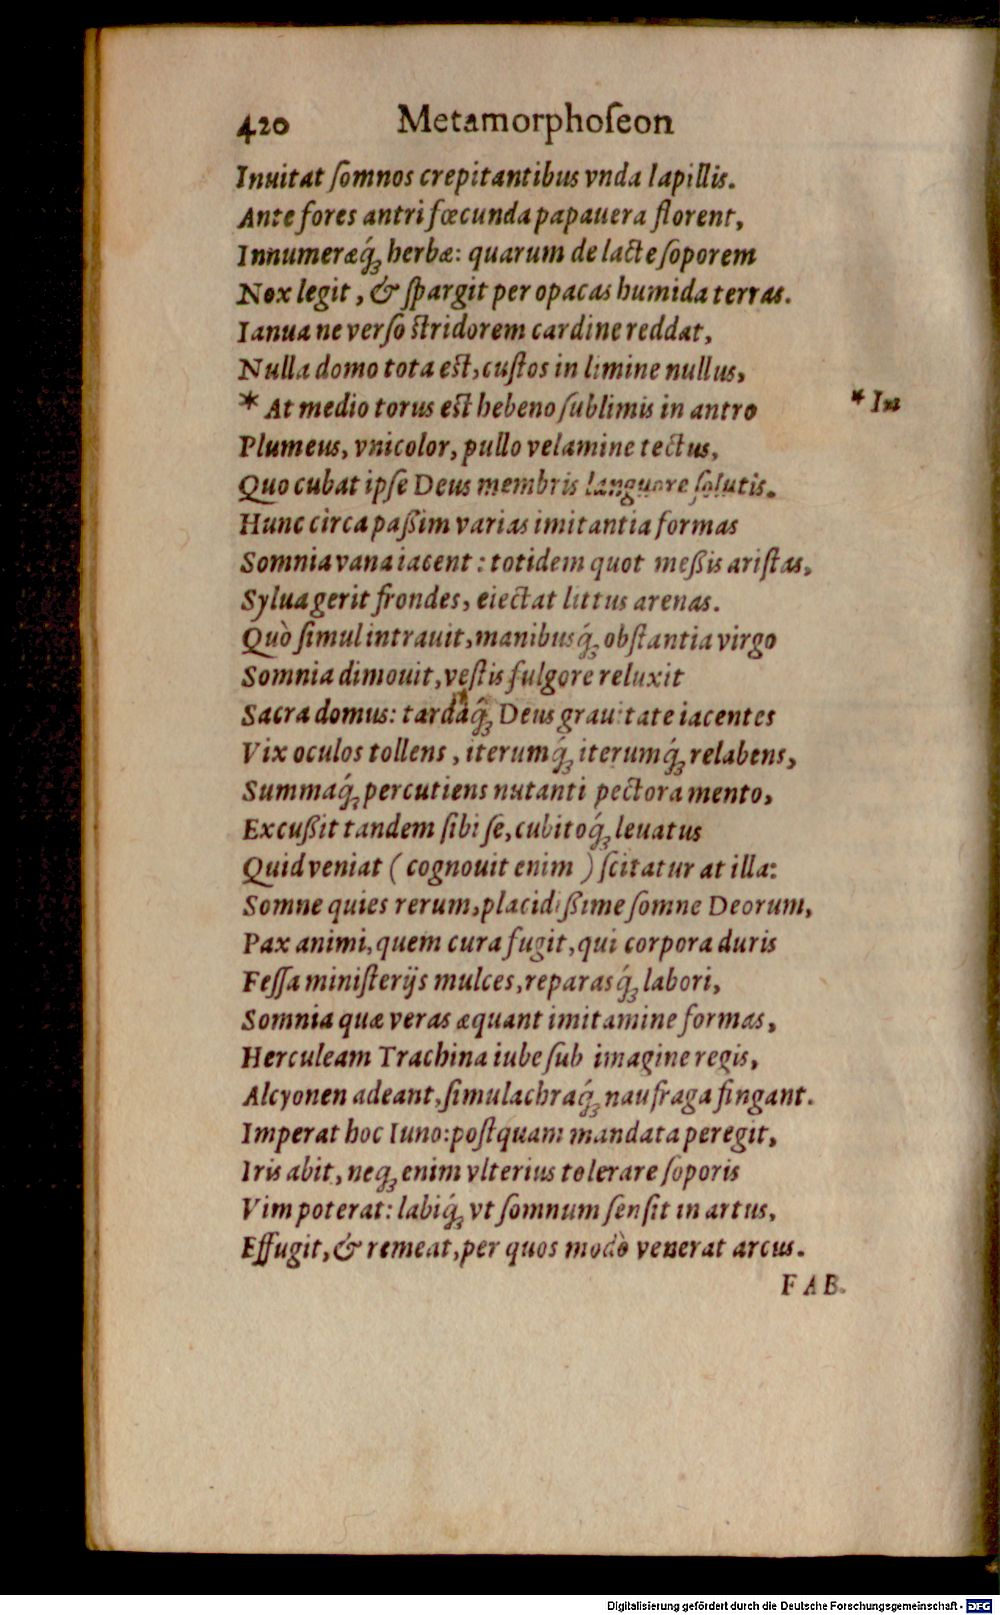 420 Metamorphoſeon
Inuitat ſomnos crepitantibus vnda lapillis.
Ante fores antri fœcunda papauera florent,
Innumeræq́ꝫ herbæ: quarum de lacte ſoporem
Nox legit, & ſpargit per opacas humida terras.
Ianua ne verſo ſtridorem cardine reddat,
Nulla domo tota eſt, cuſtos in limine nullus,
* At medio torus eſt hebeno ſublimis in antro
* In
Plumeus, vnicolor, pullo velamine tectus,
Quo cubat ipſe Deus membris languore ſolutis.
Hunc circa paßim varias imitantia formas
Somnia vana iacent: totidem quot meßis ariſtas,
Sylua gerit frondes, eiectat littus arenas.
Quò ſimul intrauit, manibusq́ꝫ obſtantia virgo
Somnia dimouit, veſtis fulgore reluxit
Sacra domus: tardaq́ꝫ Deus grauitate iacentes
Vix oculos tollens, iterumq́ꝫ iterumq́ꝫ relabens,
Summaq́ꝫ percutiens nutanti pectora mento,
Excußit tandem ſibi ſe, cubitoq́ꝫ leuatus
Quid veniat (cognouit enim) ſcitatur at illa:
Somne quies rerum, placidißime ſomne Deorum,
Pax animi, quem cura fugit, qui corpora duris
Feſſa miniſterijs mulces, reparasq́ꝫ labori,
Somnia quæ veras æquant imitamine formas,
Herculeam Trachina iube ſub imagine regis,
Alcyonen adeant, ſimulachraq́ꝫ naufraga fingant.
Imperat hoc Iuno: poſtquam mandata peregit,
Iris abit, neqꝫ enim vlterius tolerare ſoporis
Vim poterat: labiq́ꝫ vt ſomnum ſenſit in artus,
Effugit, & remeat, per quos modò venerat arcus.
FAB.
Digitalisierung gefördert durch die Deutsche Forschungsgemeinschaft - DFG